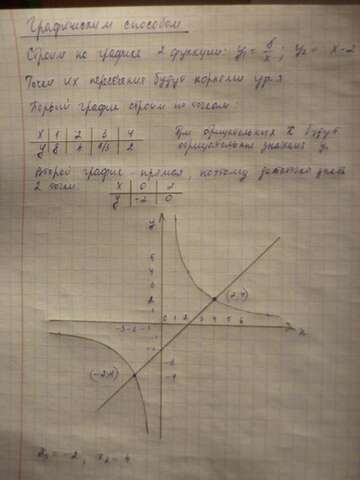 Графическим способом
Строим на графике 2 функции: y₁ = 8/x ; y₂ = x - 2
Точки их пересечения будут корнями ур-я
Первый график строим по точкам:
x 1 2 3 4
y 8 4 8/3 2
При отрицательных x будут
отрицательные значения y.
Второй график - прямая, поэтому достаточно знать
2 точки.
x 0 2
y -2 0
y
5
4
3
2
1
-3 -2 -1 0 1 2 3 4 5 6 x
x₁ = -2, x₂ = 4